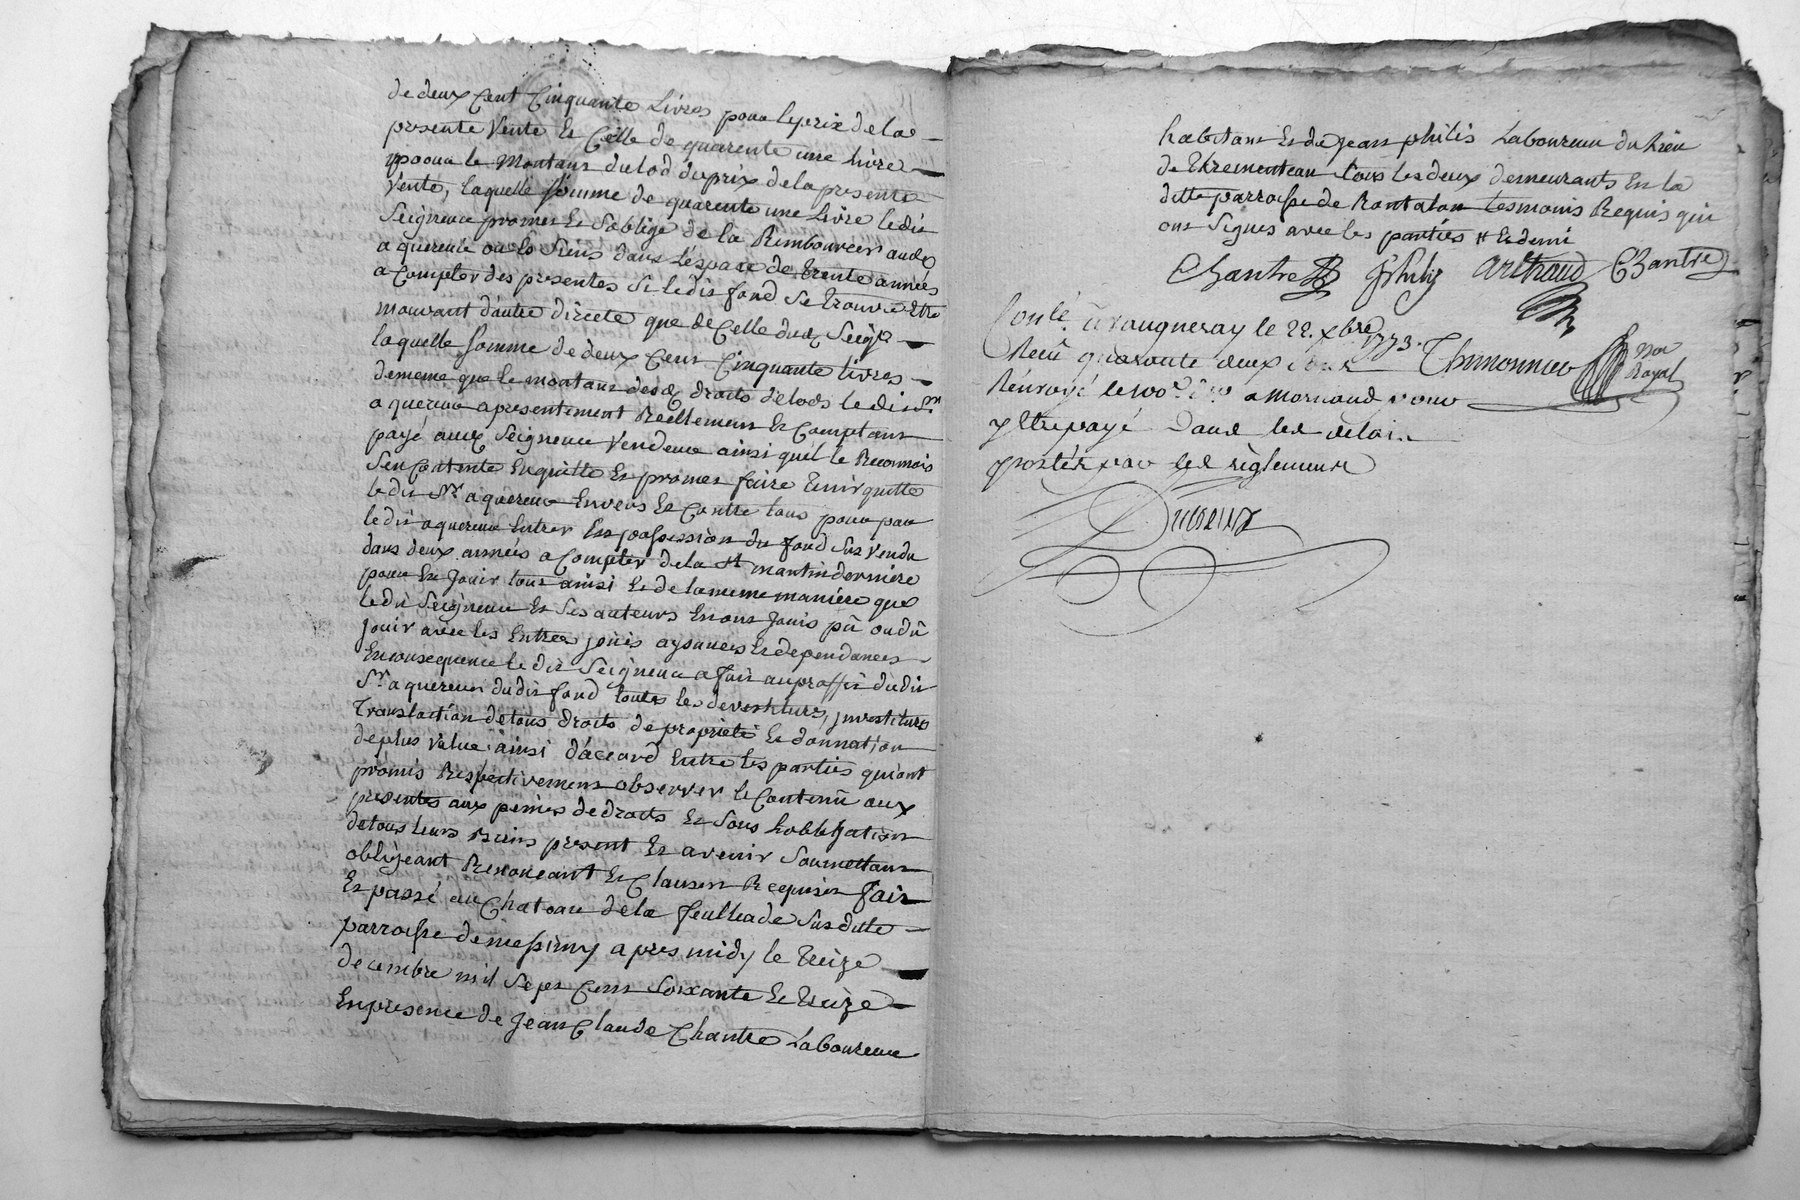 de deux Cent Cinquante Livres pour le prix de la
presente Vente et Celle de quarente une livre
pour le Montant du lod du prix de la presente
Vente, laquelle somme de quarente une Livre ledit
Seigneur promet et s'oblige de la Rembourcer audt
aquereur ou es Siens dans l'espace de trente années
a Compter des presentes Si ledit fond se trouve Etre
mouvant d'autre directe que de Celle dudt Seigr
laquelle somme de deux Cent Cinquante livres
de meme que le montant desdt droits de lods le dit Sr
aquereur a presentement Reellement et Comptant
payé audt Seigneur Vendeur ainsi quil le Reconnois
S'en Contente En quitte et promet faire tenir quitte
ledit Sr aquereur Envers et Contre tous pour par
le dit aquereur Entrer En possession du fond sus vendu
dans deux années a Compter de la St martin derniere
pour En Jouir tout ainsi et de la meme maniere que
ledit Seigneur et Ses auteurs En ont Jouis pû ou dû
Jouir avec les Entrées joüis aysances et dependances
En consequence le dit Seigneur a fait au proffit dudit
Sr aquereur dudit fond toutes les devestitures, investitures
Translaction de tous droits de proprieté Et donnation
de plus value ainsi d'accord Entre les parties qui ont
promis Respectivement observer le Contenû aux
presentes aux peines de droits et sous L'obligation
de tous leurs Biens present Et avenir Soumettant
obligeant Renonceant Et Clauses Requises fait
Et passé au Chateau de la feullade Susditte
parroisse de messimy apres midy le treize
decembre mil Sept Cent Soixante et treize
En presence de Jean Claude Chantre Laboureur
habitant Et de Jean philis Laboureur du Lieu
de tous les deux demeurants En la
ditte parroisse de Rontalon tesmoins Requis qui
ont Signés avec les parties Et demi
Chantre JPhily Arthaud Chantre
Conlé a Vaugneray le 22. xbre 1773.
Receu quarante deux Thimonnier nore Royal
Renvoyé le 100e a Mornand pour
y Etre payé Dans les delais
portés par les règlements